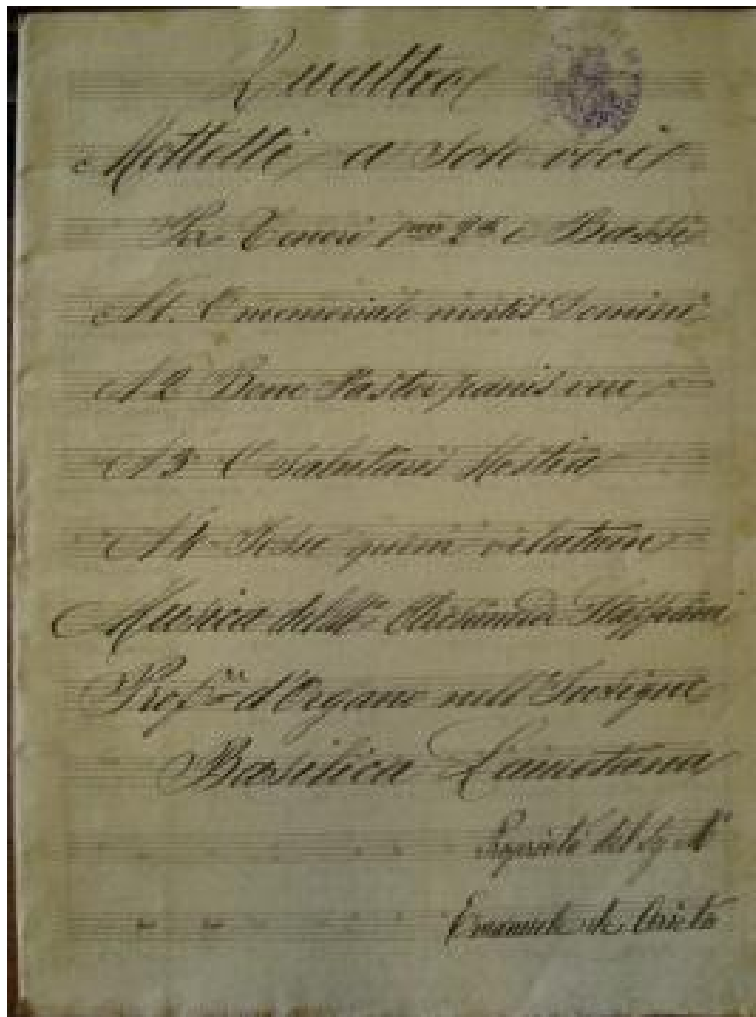 Quattro
Mottetti a Sole voci
Per Tenori 1mi 2di e Bassi
N1. O memoriale mortis Domini
N2 Bone Pastor panis vere
N3 O Salutaris Hostia
N4 Jesu quem velatum
Musica del M°
Prof.re d'Organo nell'Insigne
Basilica
Proprietà del Sig M°
Emanuele de